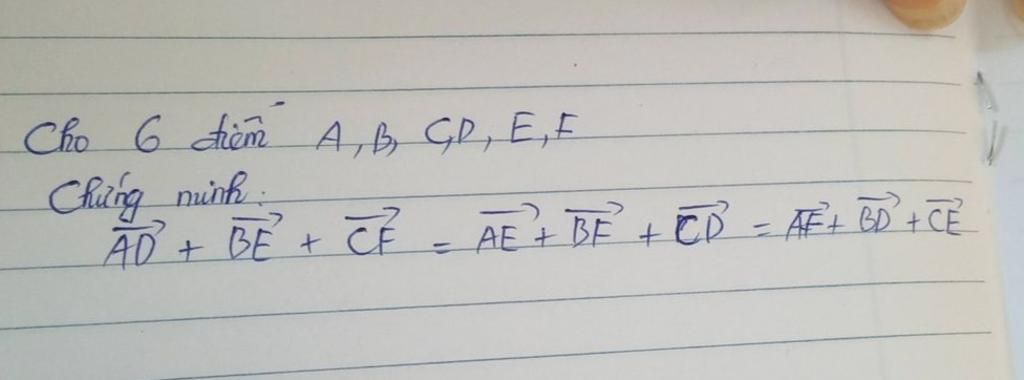 Cho 6 điểm A, B, C, D, E, F
Chứng minh:
AD + BE + CF = AE + BF + CD = AF + BD + CE